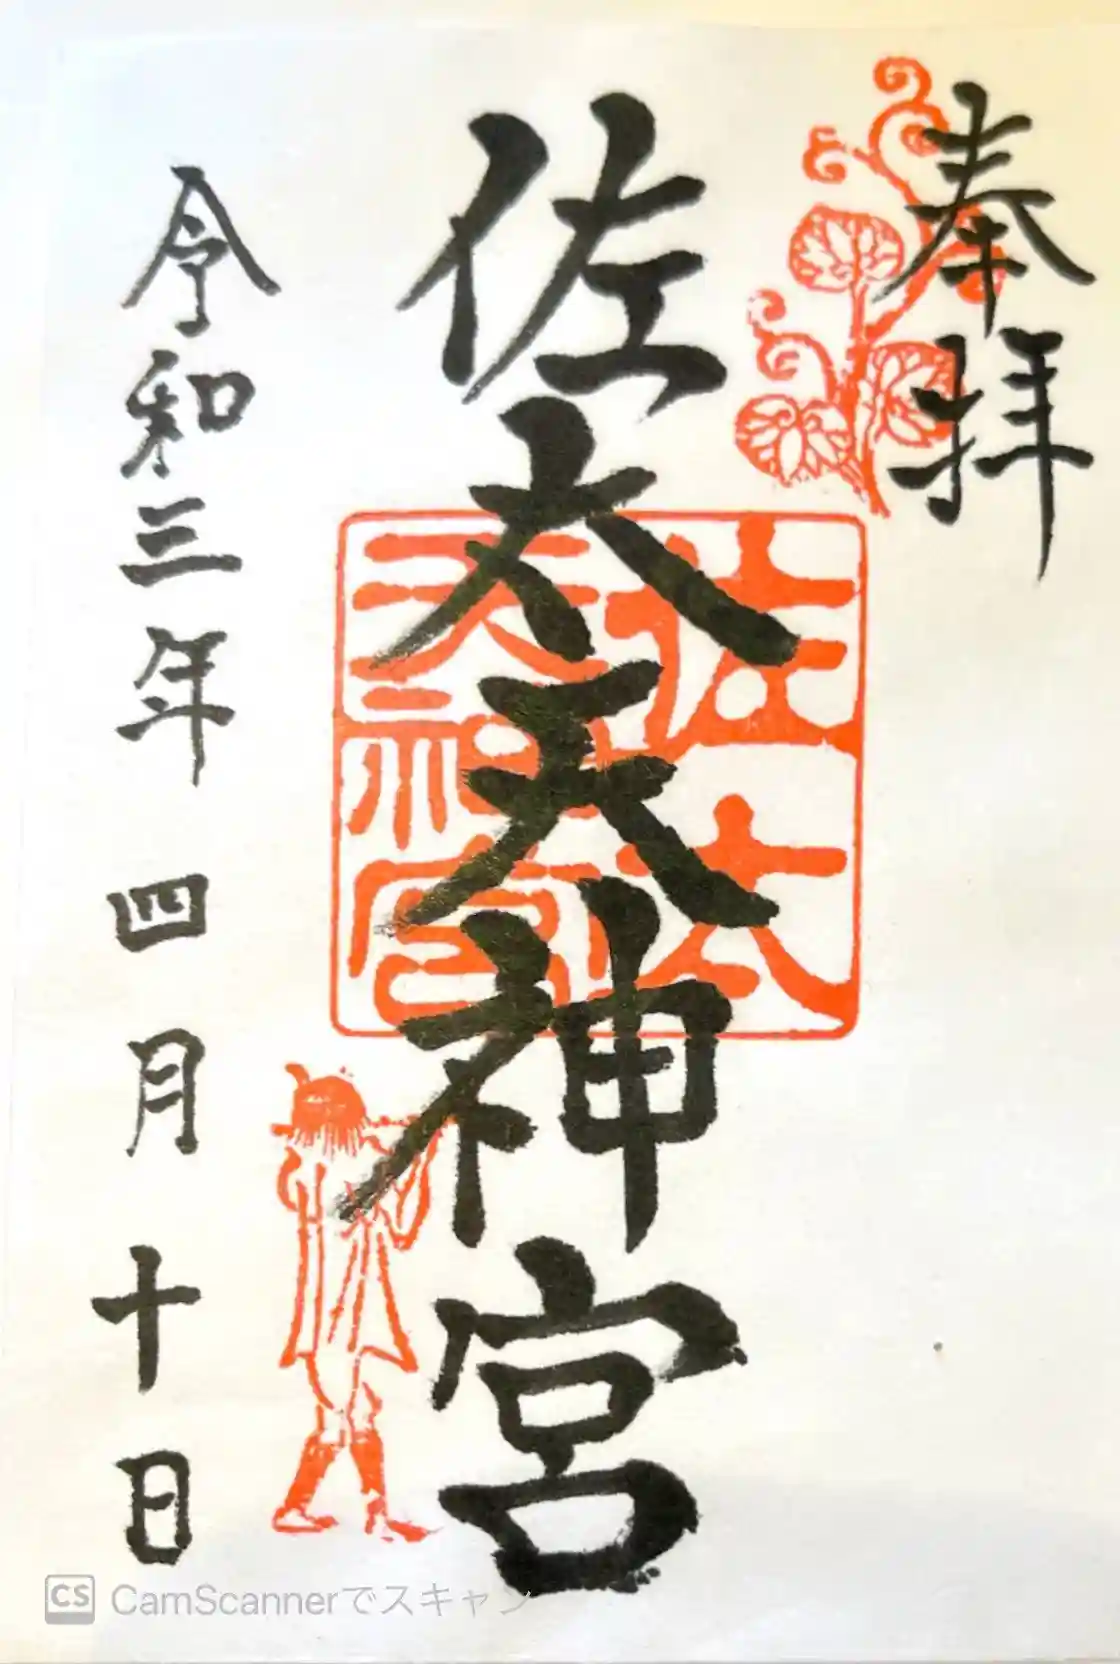 奉拝
佐太天神宮
佐太
天神宮
令和三年 四月 十日
CS CamScannerでスキャン